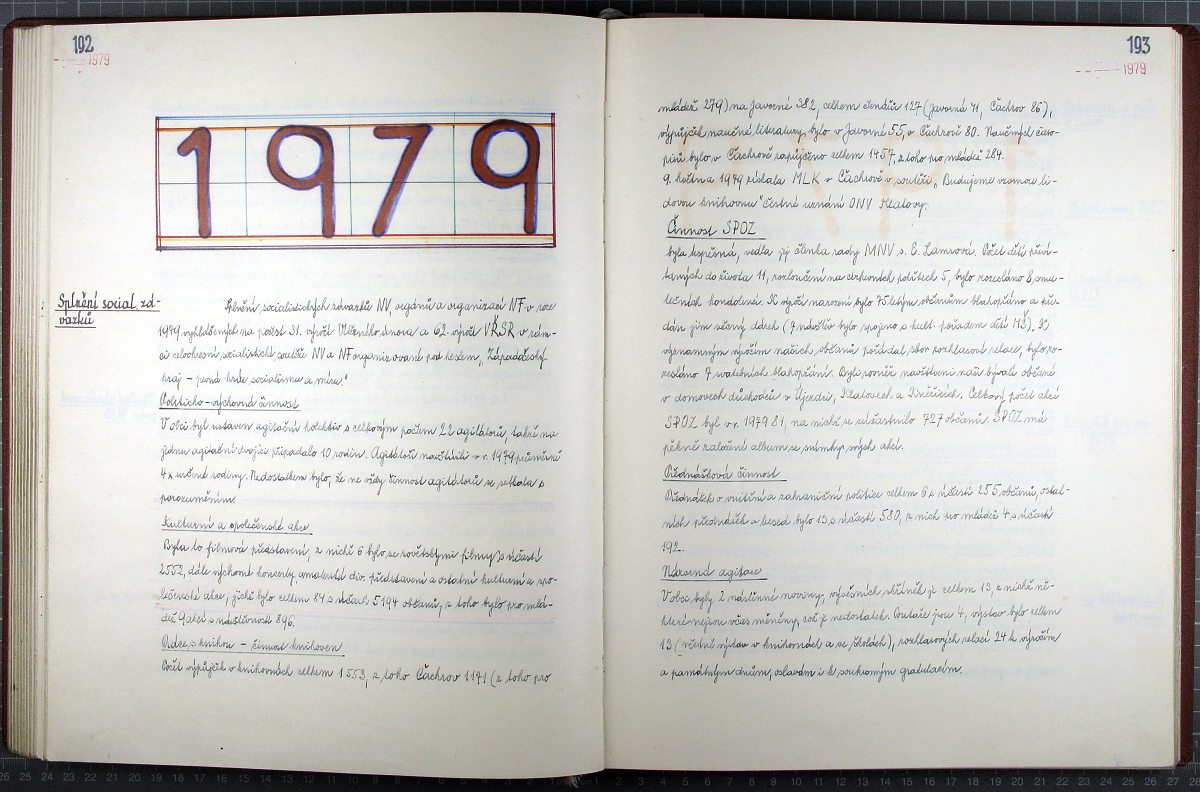 192
1979
1979
Splnění social. zá-
vazků
Splnění socialistických závazků NV, orgánů a organizací NF v roce
1979 vyhlášených na počest 31. výročí Vítězného února a 62. výročí VŘSR v rám-
ci celookresní socialistické soutěže NV a NF organizované pod heslem „Západočeský
kraj - pevná hráz socialismu a míru."
Politicko-výchovná činnost
V obci byl ustaven agitační kolektiv s celkovým počtem 22 agitátorů, takže na
jednu agitační dvojici připadalo 10 rodin. Agitátoři navštívili v r. 1979 průměrně
4x určené rodiny. Nedostatkem bylo, že ne vždy činnost agitátorů se setkala s
porozuměním.
Kulturní a společenské akce
Byla to filmová představení, z nichž 6 bylo se sovětskými filmy s účastí
2552, dále výchovné koncerty, amatérská div. představení a ostatní kulturní a spo-
lečenské akce, jichž bylo celkem 84 s účastí 5194 občanů, z toho bylo pro mlá-
dež 9 akcí s návštěvností 896.
Práce s knihou - činnost knihoven
Počet výpůjček v knihovnách celkem 1553, z toho Čachrov 1171 (z toho pro
193
1979
mládež 279) na Javorné 382, celkem čtenářů 127 (Javorná 41, Čachrov 86),
výpůjček naučné literatury bylo v Javorné 55, v Čachrově 80. Naučných časo-
pisů bylo v Čachrově zapůjčeno celkem 1457, z toho pro mládež 284.
9. května 1979 získala MLK v Čachrově v soutěži „Budujeme vzornou li-
dovou knihovnu" čestné uznání ONV Klatovy.
Činnost SPOZ
byla úspěšná, vedla ji členka rady MNV s. E. Lamrová. Počet dětí přiví-
taných do života 11, rozloučení na církevních pohřbech 5, bylo rozesláno 8 smu-
tečních kondolencí. K výročí narození bylo 75letým občanům blahopřáno a pře-
dán jim věcný dárek (7 návštěv bylo spojeno s kult. pořadem dětí MŠ). K
významným výročím našich občanů pořádal sbor rozhlasové relace, bylo ro-
zesláno 7 svatebních blahopřání. Byli rovněž navštíveni naši bývalí občané
v domovech důchodců v Újezdci, Klatovech a Kněžicích. Celkový počet akcí
SPOZ byl v r. 1979 81, na nichž se zúčastnilo 727 občanů. SPOZ má
pěkně založené album se snímky svých akcí.
Přednášková činnost
Přednášek o vnitřní a zahraniční politice celkem 6 s účastí 255 občanů, ostat-
ních přednášek a besed bylo 13 s účastí 580, z nich pro mládež 4 s účastí
192.
Názorná agitace
V obci byly 2 nástěnné noviny, vývěsních skříněk je celkem 13, z nichž ně-
které nejsou včas měněny, což je nedostatek. Poutače jsou 4, výstav bylo celkem
13 (včetně výstav v knihovnách a ve školách), rozhlasových relací 24 k výročím
a památným dnům, oslavám i k soukromým gratulacím.